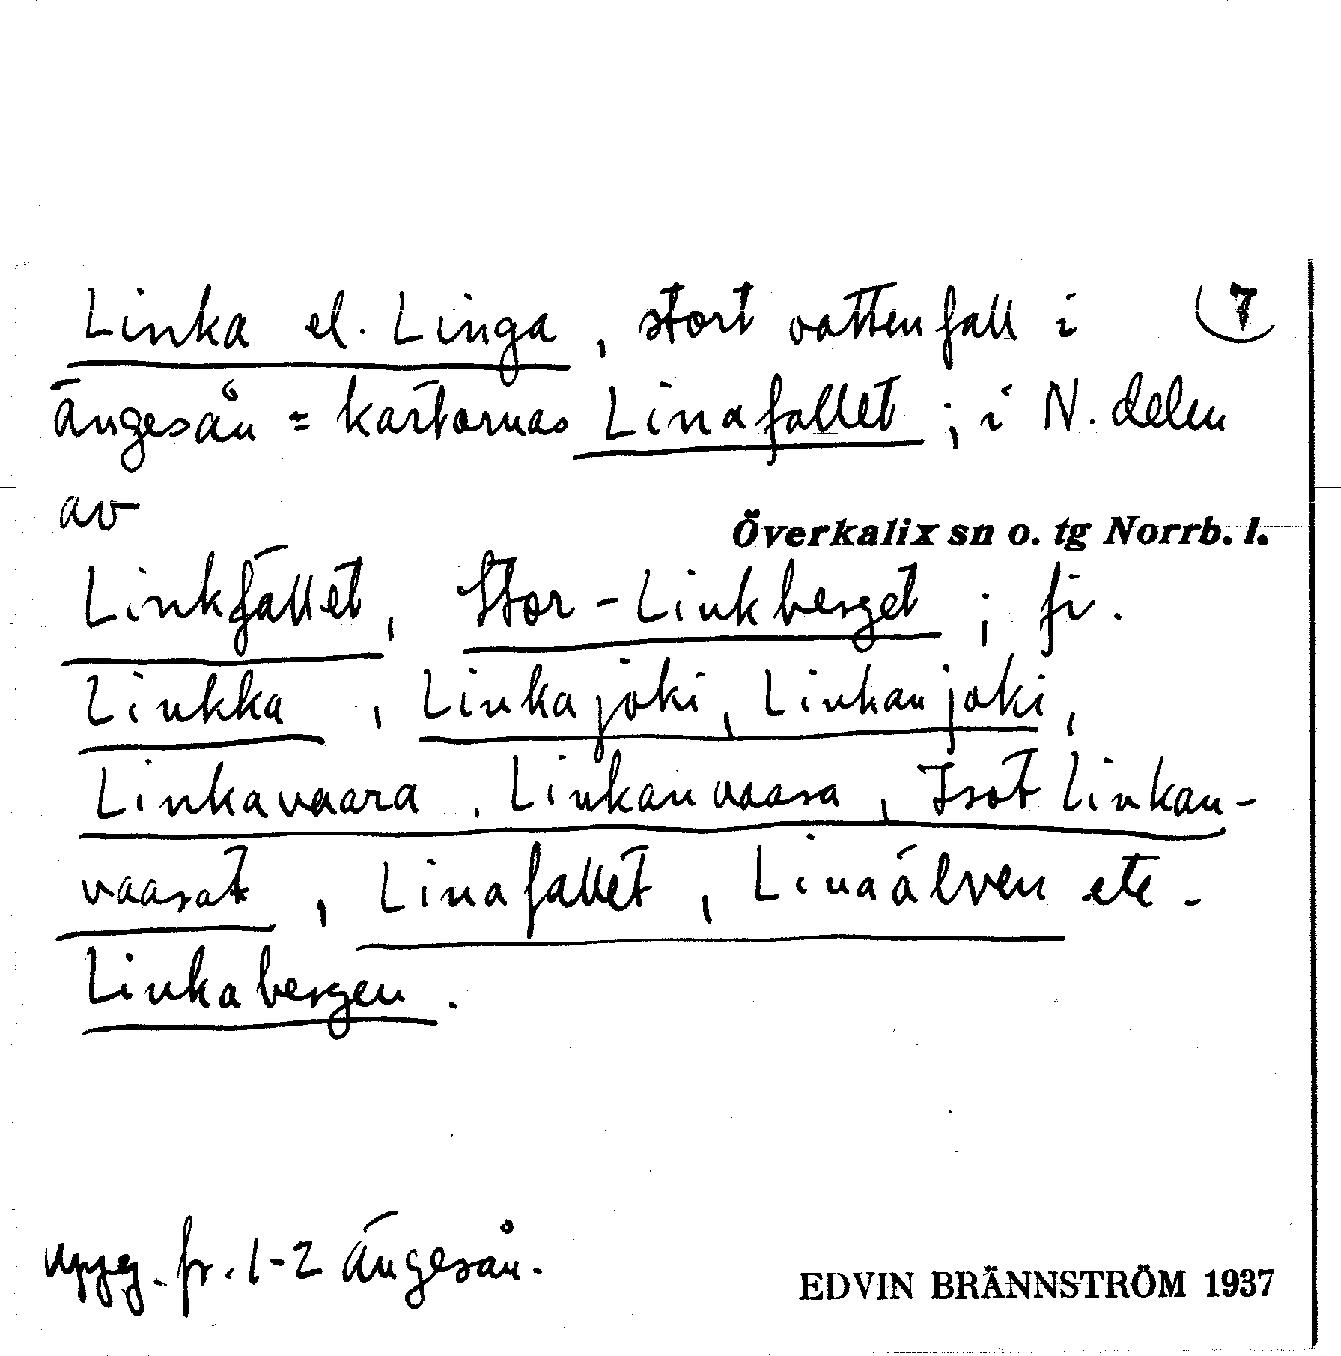 Linka el. Linga, stort vattenfall i 7
ängesån = kartornas Linafallet ; i N. delen
av
Överkalix sn o. tg Norrb. l.
Linkfället, Stor-Linkberget ; fi.
Linkka, Linkajoki, Linkanjoki,
Linkavaara, Linkanvaara, Isot Linkan-
vaarat, Linafallet, Linaälven etc.
Linkabergen.
uppg. fr. 1-2 Ängesån.
EDVIN BRÄNNSTRÖM 1937